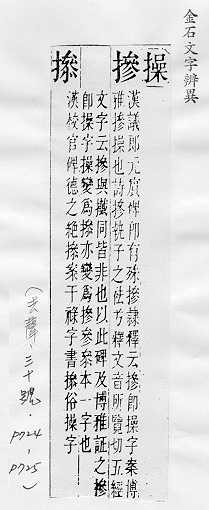 金石文字辨異
操
摻
漢議郎元賓碑即有殊摻隸釋云摻即操字案博
雅摻操也詩摻執子之袪兮釋文音所覽切五經
文字云摻與攕同皆非也以此碑及博雅証之摻
即操字操變爲摻亦變爲摻參叅本一字也
漢校官碑德之絕摻案干祿字書摻俗操字
（去聲·三十號·P724,P725）